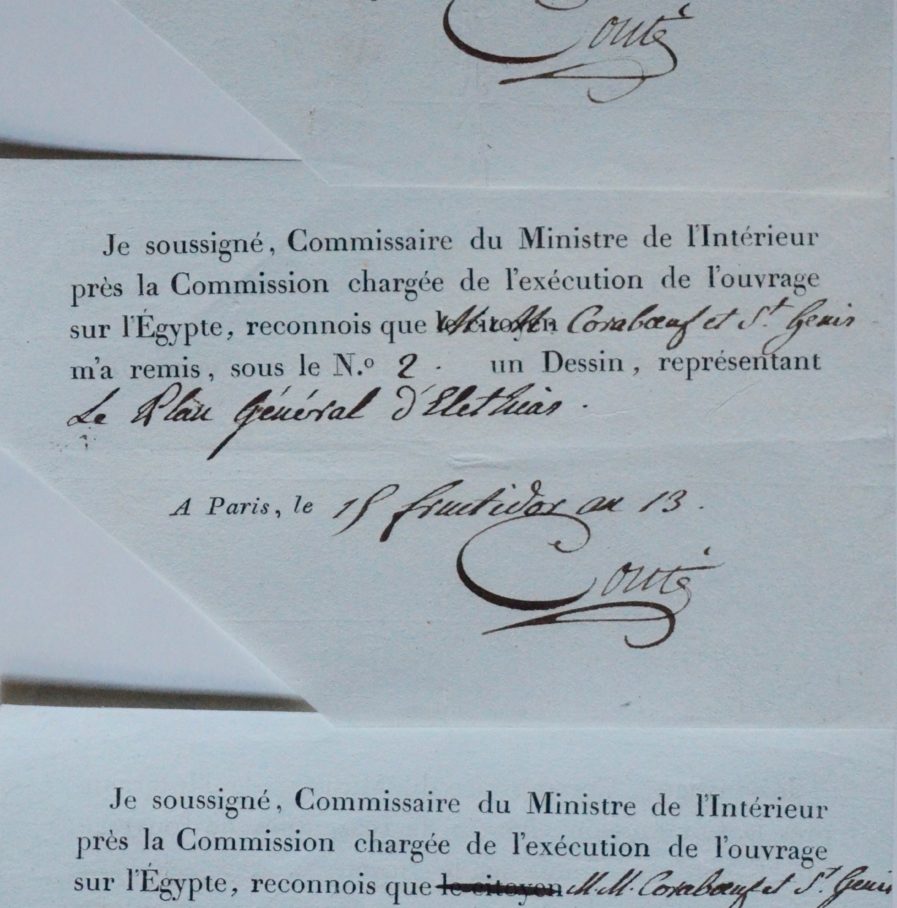 Conté
Je soussigné, Commissaire du Ministre de l'Intérieur
près la Commission chargée de l'exécution de l'ouvrage
sur l'Égypte, reconnois que le citoyen M. M. Coraboeuf et St. Genis
m'a remis, sous le N.º 2. un Dessin, représentant
Le Plan Général d'Elethias.
A Paris, le 15 fructidor an 13.
Conté
Je soussigné, Commissaire du Ministre de l'Intérieur
près la Commission chargée de l'exécution de l'ouvrage
sur l'Égypte, reconnois que le citoyen M. M. Coraboeuf et St. Genis